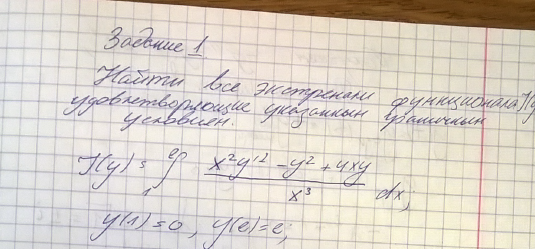 Задание 1
Найти все экстремали функционала J(y
удовлетворяющие указанным граничным
условиям.
J(y) = ∫₁ᵉ (x²y'² - y² + 4xy)/x³ dx;
y(1)=0, y(e)=e;